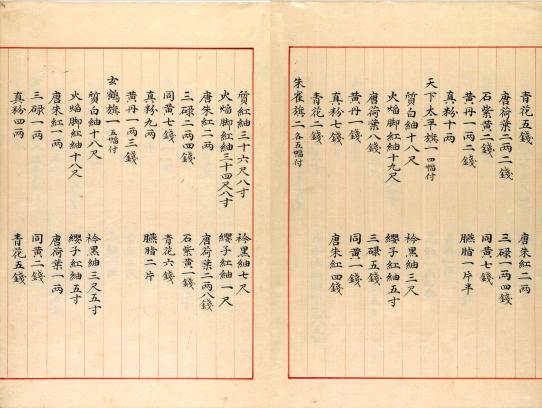 青花五錢　唐朱紅二两
唐荷葉二两二錢　三碌一两四錢
石紫黃二錢　同黃七錢
黃丹一两二錢　臙脂一片半
真粉十两
天下太平旗一 四幅付
質白紬十八尺　衿黑紬三尺
火焰脚紅紬十九尺　纓子紅紬五寸
唐荷葉八錢　三碌五錢
黃丹一錢　同黃一錢
真粉七錢　唐朱紅四錢
青花二錢
朱雀旗二 各五幅付
質紅紬三十六尺八寸　衿黑紬七尺
火焰脚紅紬三十四尺八寸　纓子紅紬一尺
唐朱紅二两　唐荷葉二两八錢
三碌二两四錢　石紫黃一錢
同黃七錢　青花六錢
真粉九两　臙脂二片
黃丹一两三錢
玄鶴旗一 五幅付
質白紬十八尺　衿黑紬三尺五寸
火焰脚紅紬十八尺　纓子紅紬五寸
唐朱紅一两　唐荷葉一两
三碌一两　同黃二錢
真粉四两　青花五錢